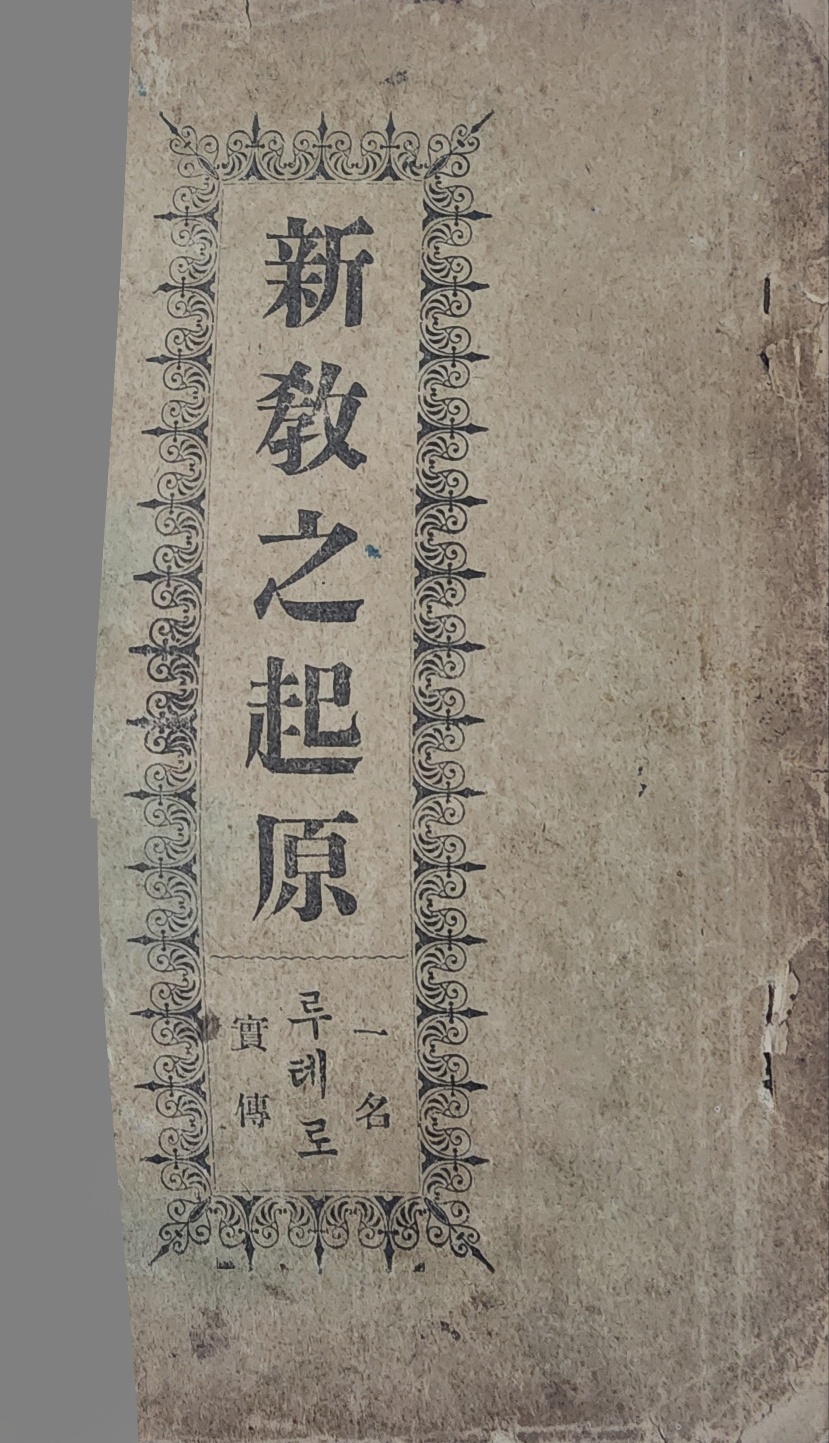 新教之起原
一名
루테로
實傳